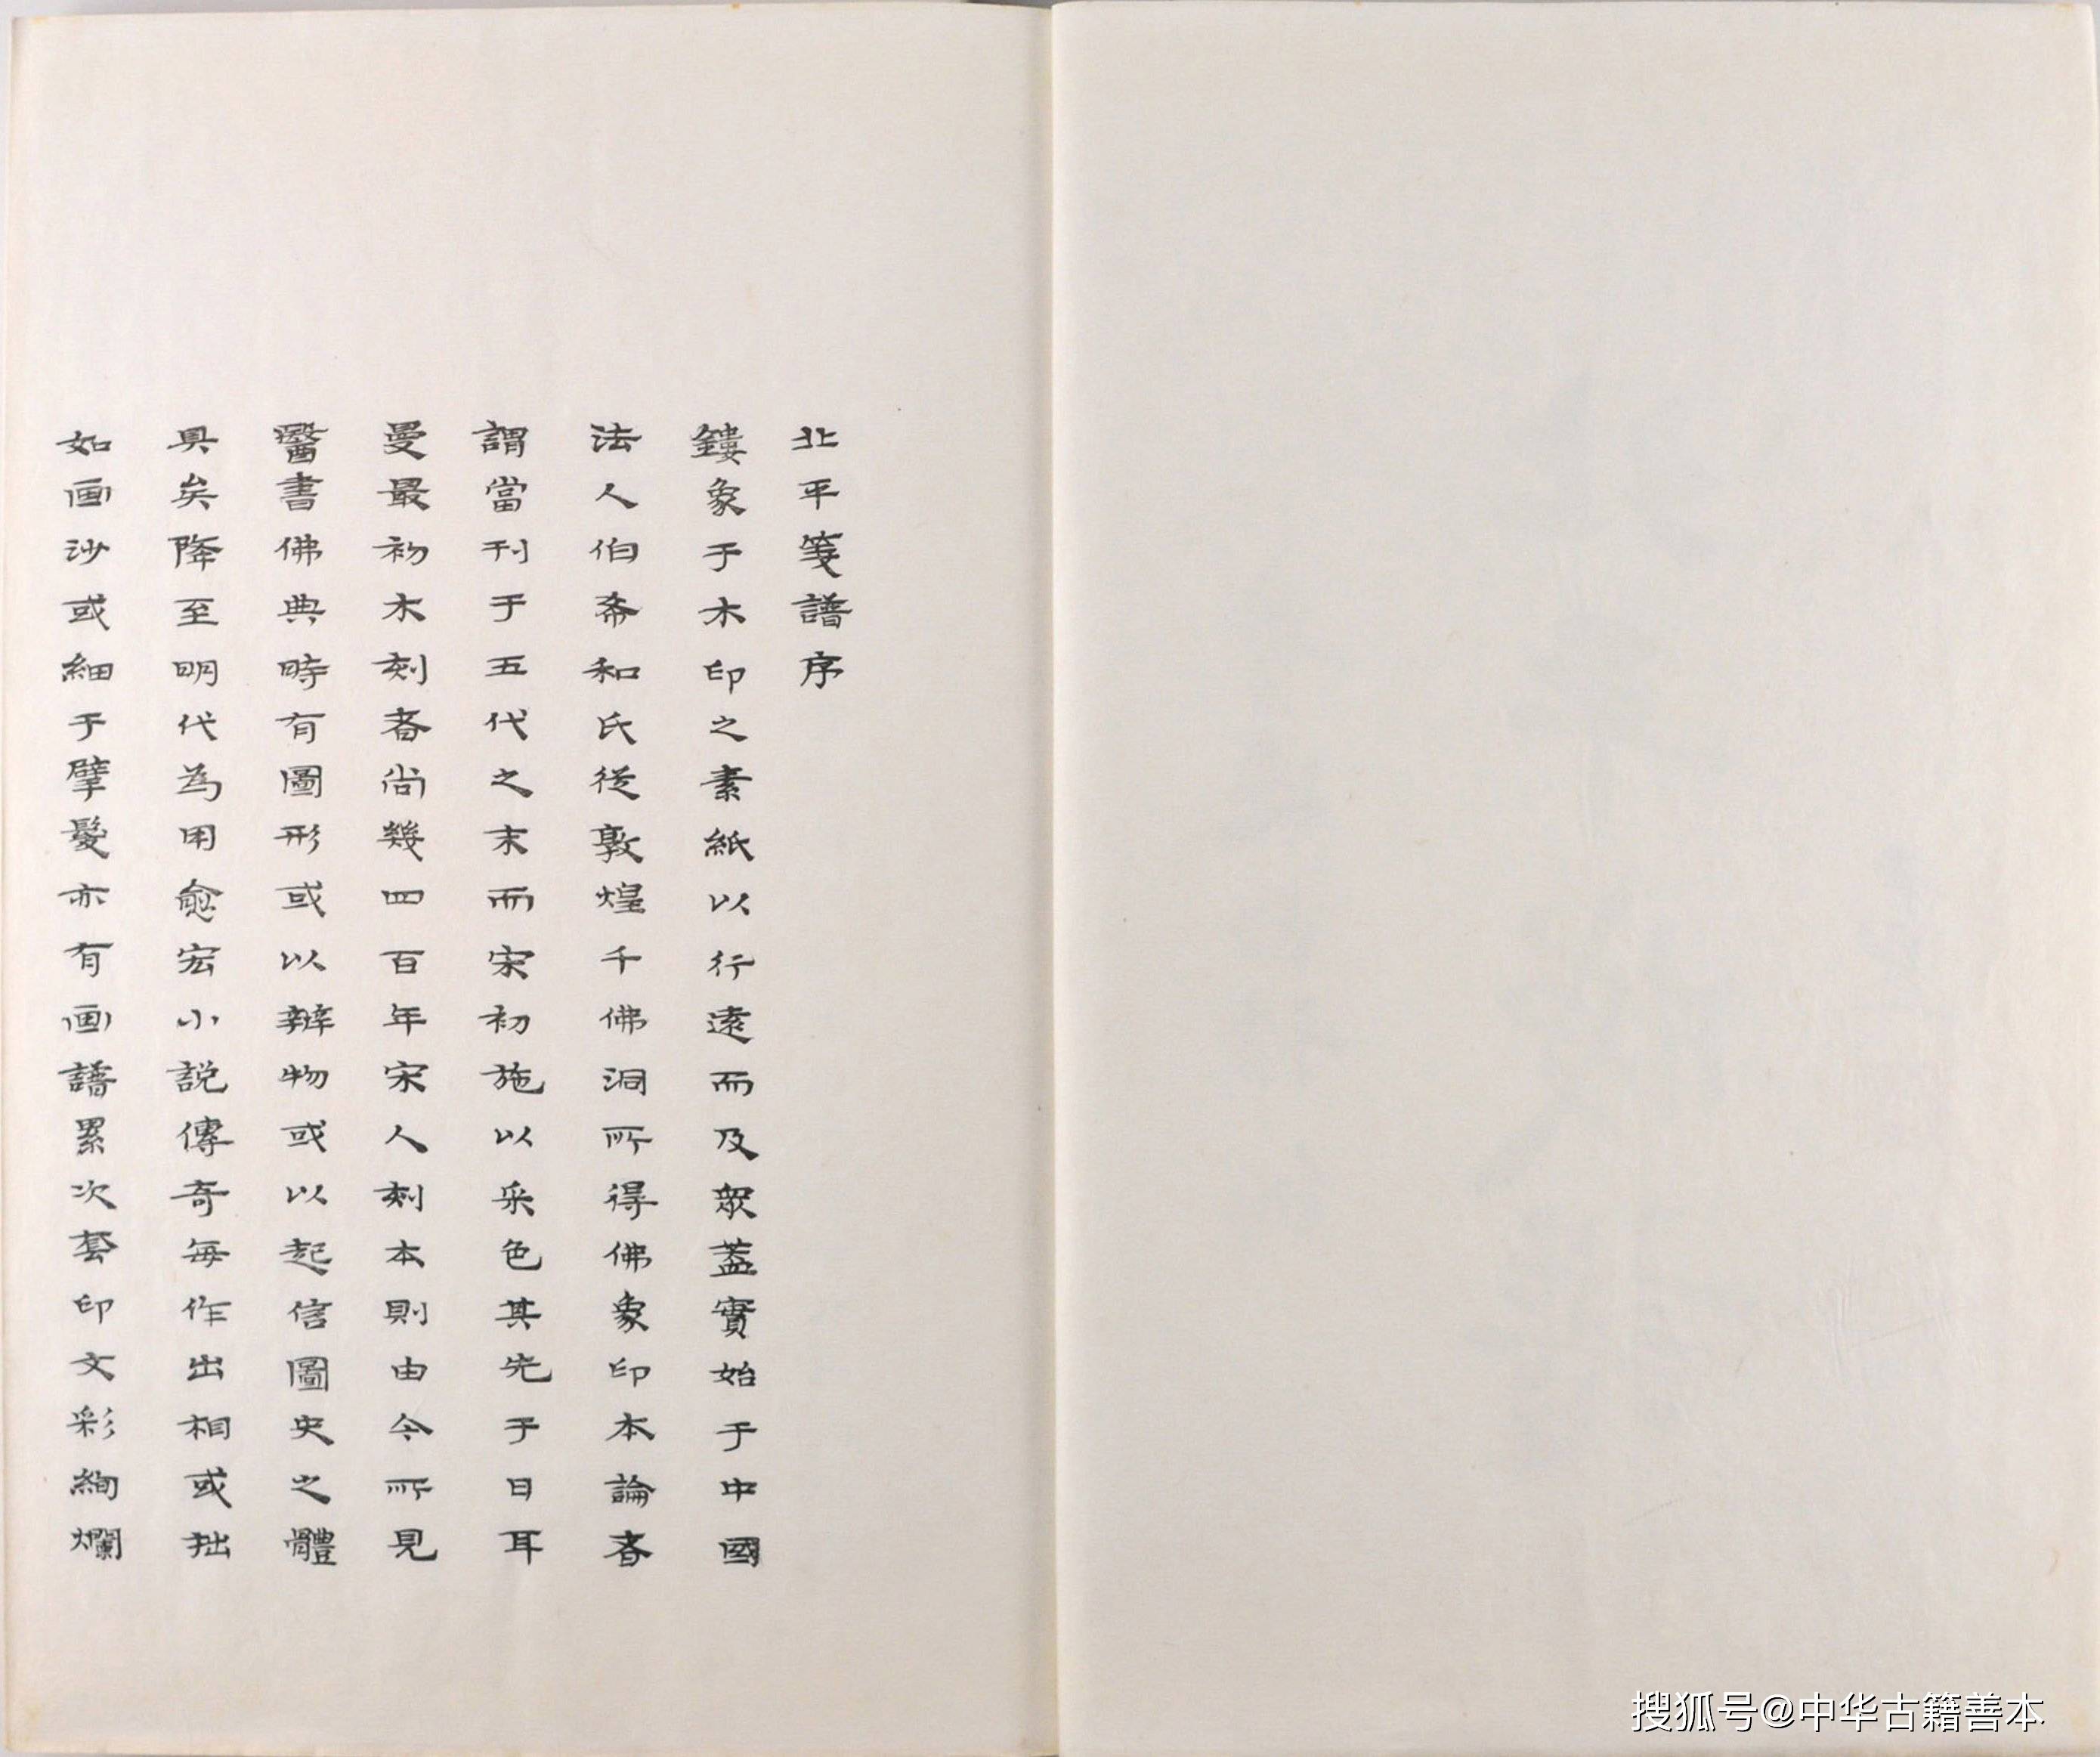 北平箋譜序
鏤象于木印之素紙以行遠而及眾蓋實始于中國
法人伯希和氏從敦煌千佛洞所得佛象印本論者
謂當刊于五代之末而宋初施以采色其先于日耳
曼最初木刻者尚幾四百年宋人刻本則由今所見
醫書佛典時有圖形或以辨物或以起信圖史之體
具矣降至明代為用愈宏小說傳奇每作出相或拙
如画沙或細于擘髮亦有画譜累次套印文彩絢爛
搜狐号@中华古籍善本